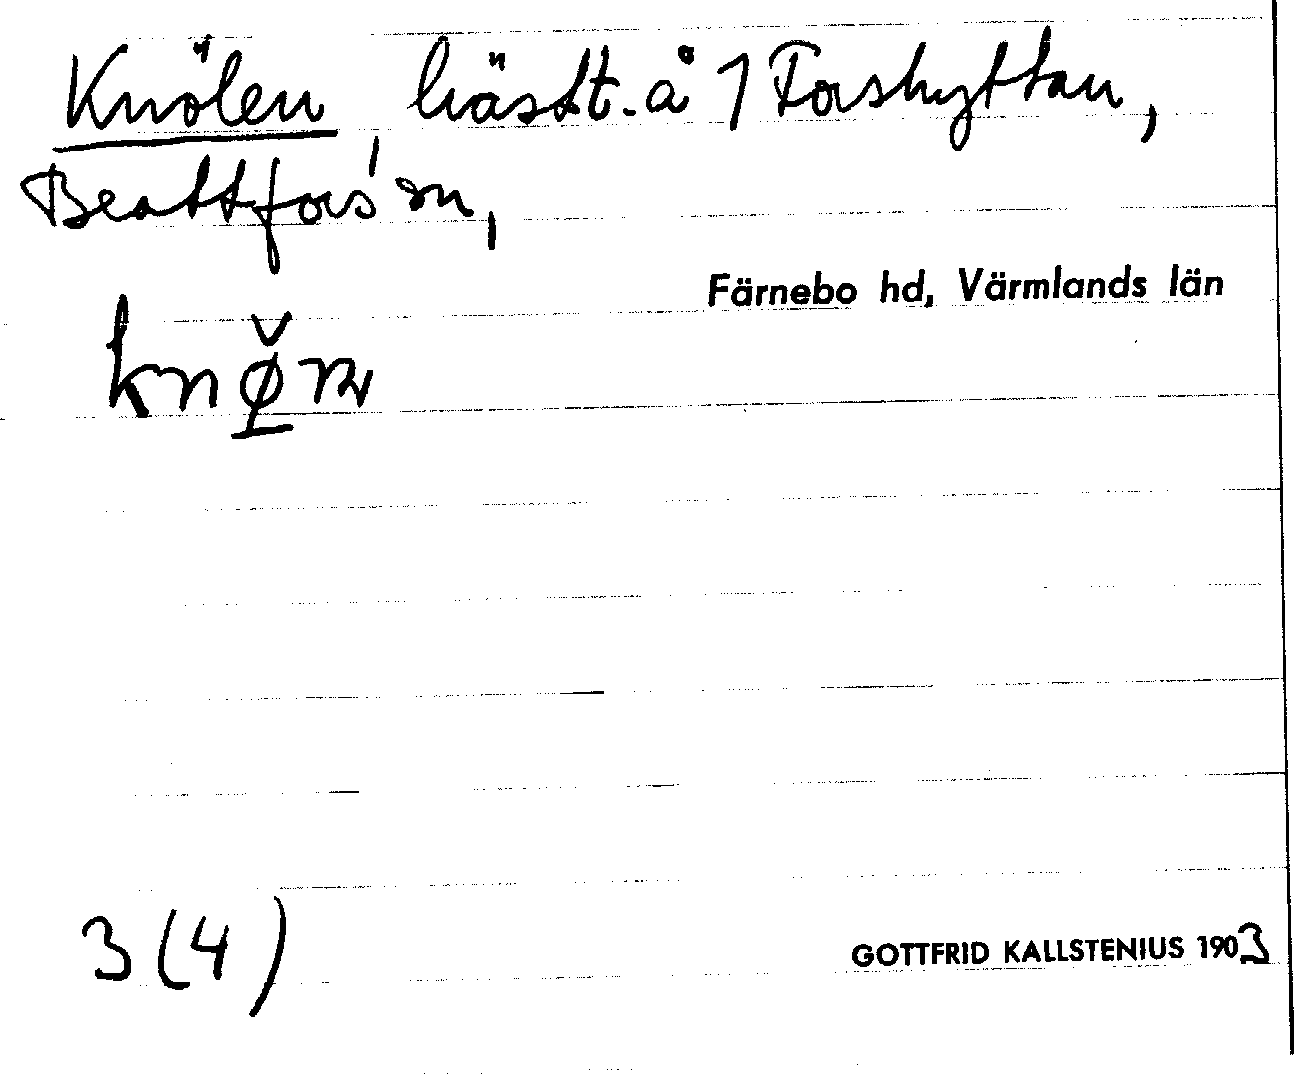 Knölen, hästt. å 1 Forshyttan,
Brattforsˈsn,
Färnebo hd, Värmlands län
3 (4)
GOTTFRID KALLSTENIUS 1903